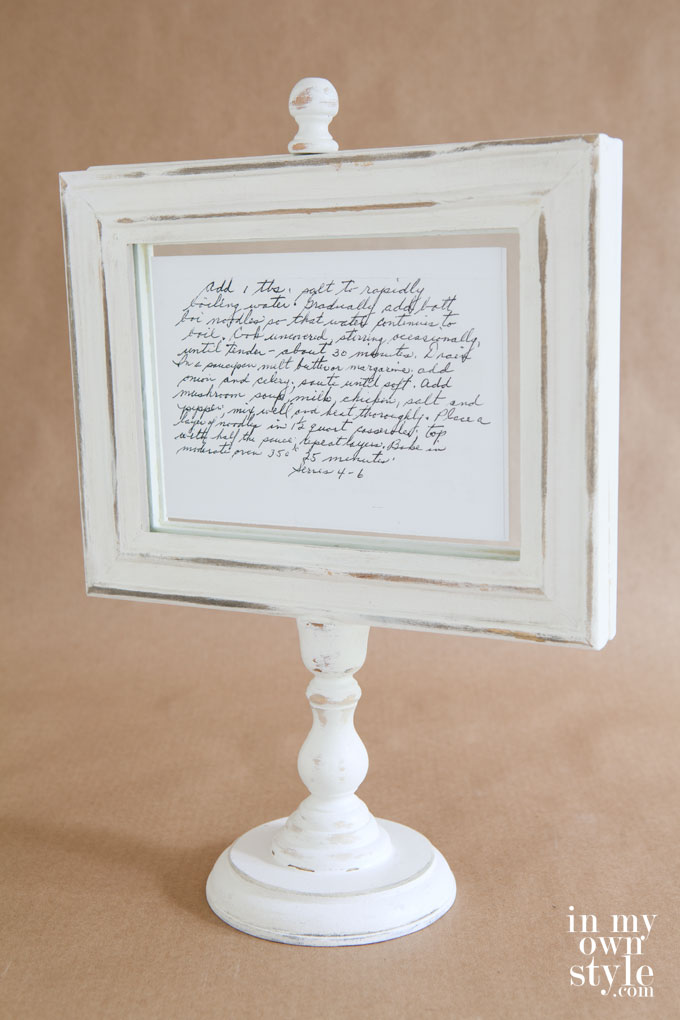 Add 1 tbs. salt to rapidly
boiling water. Gradually add bott
boi noodles so that water continues to
boil. Cook uncovered, stirring occasionally,
until tender - about 30 minutes.
In a saucepan melt butter or margarine, add
onion and celery, saute until soft. Add
mushroom soup, milk, chicken, salt and
pepper, mix well and heat thoroughly. Place a
layer of noodles in 1½ quart casserole, top
with half the sauce, repeat layers. Bake in
moderate oven 350° 25 minutes.
Serves 4-6
in my
own
style
.com